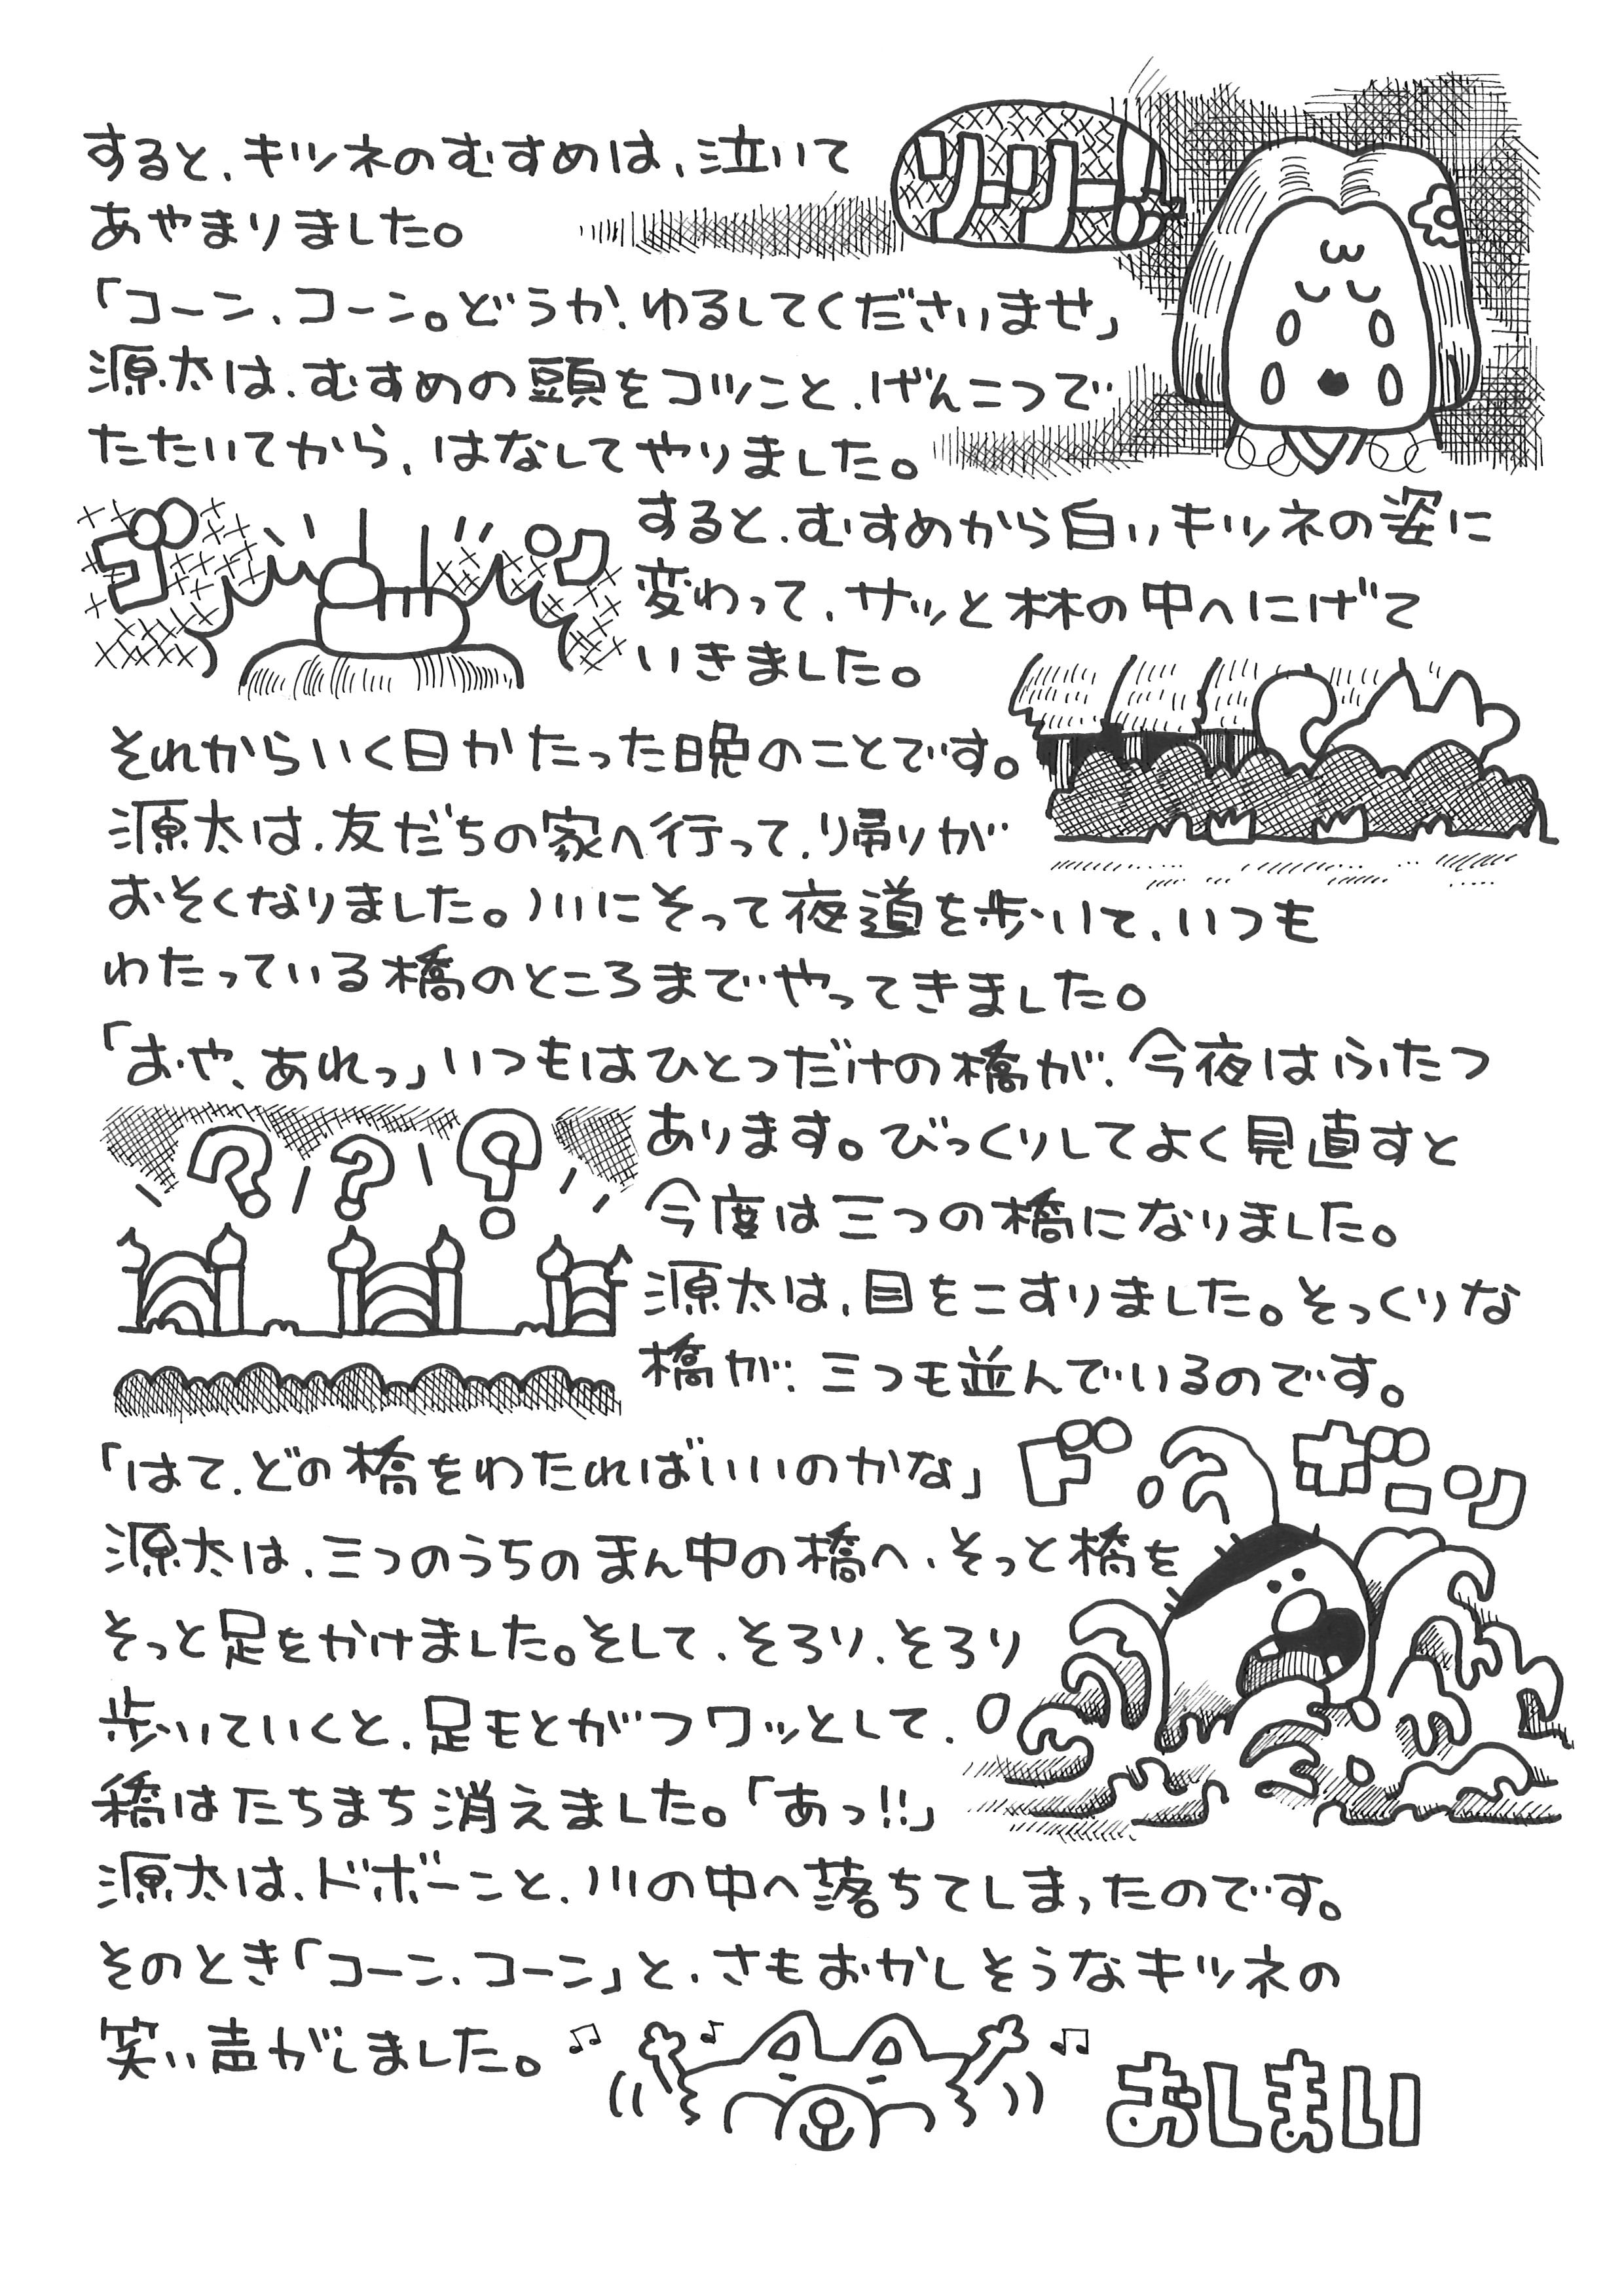 すると、キツネのむすめは、泣いて
ソーリー!
あやまりました。
「コーン、コーン。どうか、ゆるしてくださいませ」
源太は、むすめの頭をコツこと、げんこつで
たたいてから、はなしてやりました。
ゴーン
すると、むすめから白いキツネの姿に
変わって、サッと林の中へにげて
いきました。
それからいく日かたった晩のことです。
源太は、友だちの家へ行って、帰りが
おそくなりました。川にそって夜道を歩いて、いつも
わたっている橋のところまでやってきました。
「おや、あれっ」いつもはひとつだけの橋が、今夜はふたつ
あります。びっくりしてよく見直すと
???
今度は三つの橋になりました。
源太は、目をこすりました。そっくりな
橋が、三つも並んでいるのです。
「はて、どの橋をわたればいいのかな」
ド ボーン
源太は、三つのうちのまん中の橋へ、そっと橋を
そっと足をかけました。そして、そろり、そろり
歩いていくと、足もとがフワッとして、
橋はたちまち消えました。「あっ!!」
源太は、ドボーンと、川の中へ落ちてしまったのです。
そのとき「コーン、コーン」と、さもおかしそうなキツネの
笑い声がしました。
おしまい